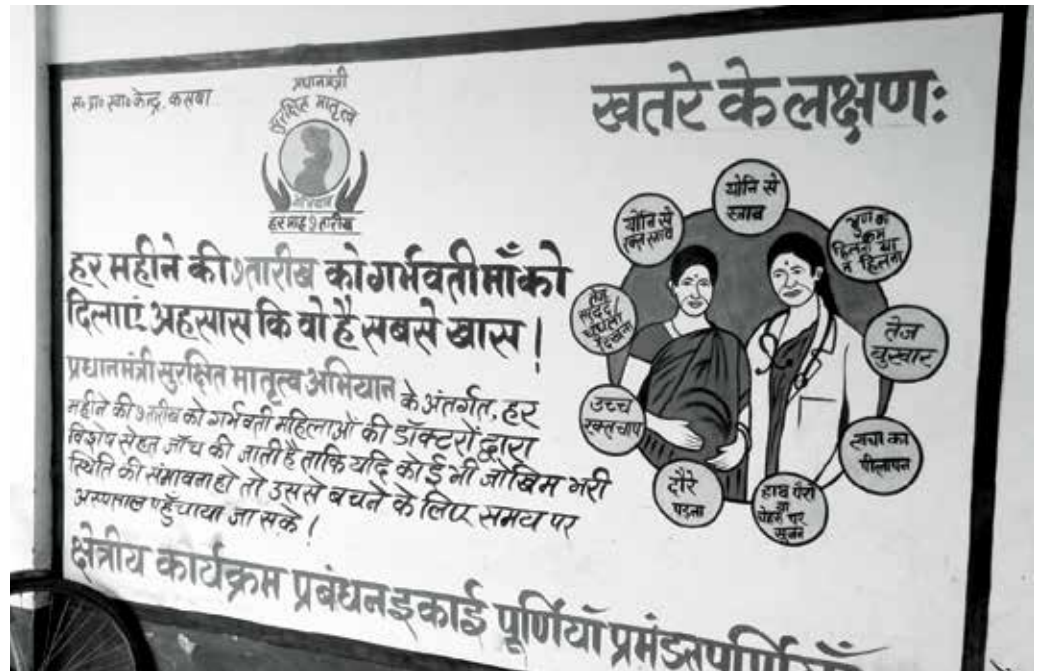 स० प्रा० स्वा० केन्द्र, कसबा
प्रधानमंत्री
सुरक्षित मातृत्व
अभियान
हर माह ९ तारीख
हर महीने की ९ तारीख को गर्भवती माँ को
दिलाएं अहसास कि वो है सबसे खास !
प्रधानमंत्री सुरक्षित मातृत्व अभियान के अंतर्गत, हर
महीने की ९ तारीख को गर्भवती महिलाओं की डॉक्टरों द्वारा
विशेष सेहत जाँच की जाती है ताकि यदि कोई भी जोखिम भरी
स्थिति की संभावना हो तो उससे बचने के लिए समय पर
अस्पताल पहुँचाया जा सके !
क्षेत्रीय कार्यक्रम प्रबंधन इकाई पूर्णियाँ प्रमंडल पूर्णियाँ
खतरे के लक्षण:
योनि से
स्त्राव
भ्रूण का
कम
हिलना या
न हिलना
तेज
बुखार
त्वचा का
पीलापन
हाथ पैरों
या
चेहरे पर
सूजन
दौरे
पड़ना
उच्च
रक्तचाप
तेज
सरदर्द/
धुंधला
देखना
योनि से
रक्त स्त्राव